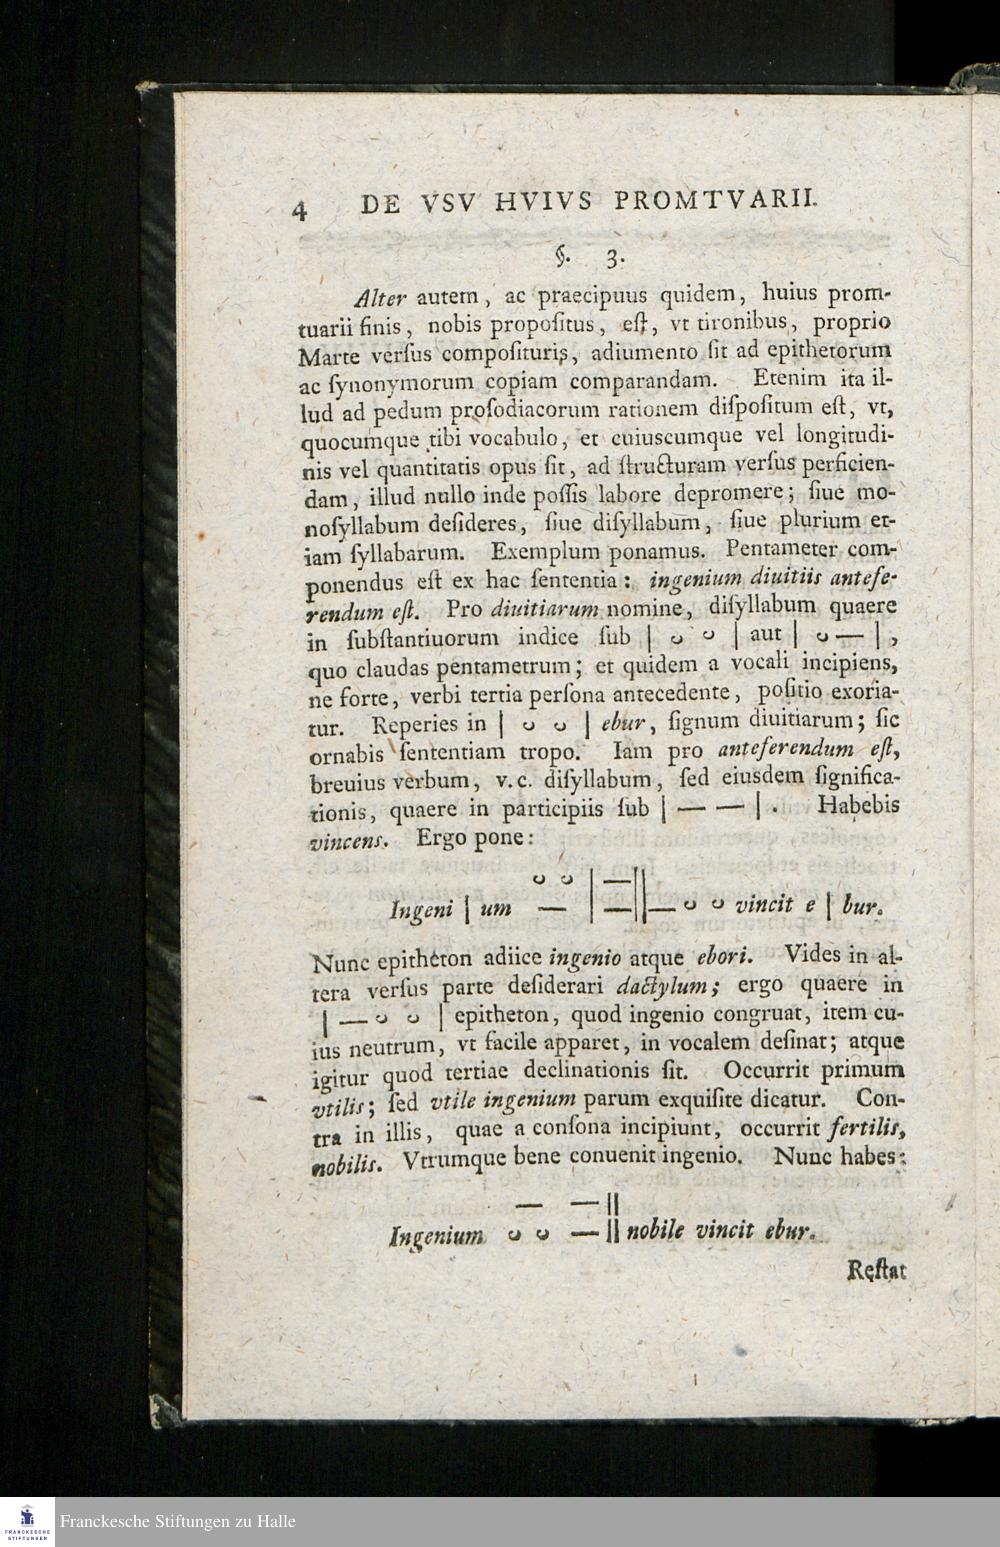 4 DE VSV HVIVS PROMTVARII.
§. 3.
Alter autem, ac praecipuus quidem, huius prom-
tuarii finis, nobis propoſitus, eſt, vt tironibus, proprio
Marte verſus compoſituris, adiumento ſit ad epithetorum
ac ſynonymorum copiam comparandam. Etenim ita il-
lud ad pedum proſodiacorum rationem diſpoſitum eſt, vt,
quocumque tibi vocabulo, et cuiuscumque vel longitudi-
nis vel quantitatis opus ſit, ad ſtructuram verſus perficien-
dam, illud nullo inde poſſis labore depromere; ſiue mo-
noſyllabum deſideres, ſiue diſyllabum, ſiue plurium et-
iam ſyllabarum. Exemplum ponamus. Pentameter com-
ponendus eſt ex hac ſententia: ingenium diuitiis antefe-
rendum eſt. Pro diuitiarum nomine, diſyllabum quaere
in ſubſtantiuorum indice ſub | ᴗ ᴗ | aut | ᴗ — |,
quo claudas pentametrum; et quidem a vocali incipiens,
ne forte, verbi tertia perſona antecedente, poſitio exoria-
tur. Reperies in | ᴗ ᴗ | ebur, ſignum diuitiarum; ſic
ornabis ſententiam tropo. Iam pro anteferendum eſt,
breuius verbum, v. c. diſyllabum, ſed eiusdem ſignifica-
tionis, quaere in participiis ſub | — — |. Habebis
vincens. Ergo pone:
ᴗ ᴗ | — ||
Ingeni | um — | — || — ᴗ ᴗ vincit e | bur.
Nunc epitheton adiice ingenio atque ebori. Vides in al-
tera verſus parte deſiderari dactylum; ergo quaere in
| — ᴗ ᴗ | epitheton, quod ingenio congruat, item cu-
ius neutrum, vt facile apparet, in vocalem deſinat; atque
igitur quod tertiae declinationis ſit. Occurrit primum
vtilis; ſed vtile ingenium parum exquiſite dicatur. Con-
tra in illis, quae a conſona incipiunt, occurrit fertilis,
nobilis. Vtrumque bene conuenit ingenio. Nunc habes:
— — ||
Ingenium ᴗ ᴗ — || nobile vincit ebur.
Reſtat
FRANCKESCHE
STIFTUNGEN
Franckesche Stiftungen zu Halle